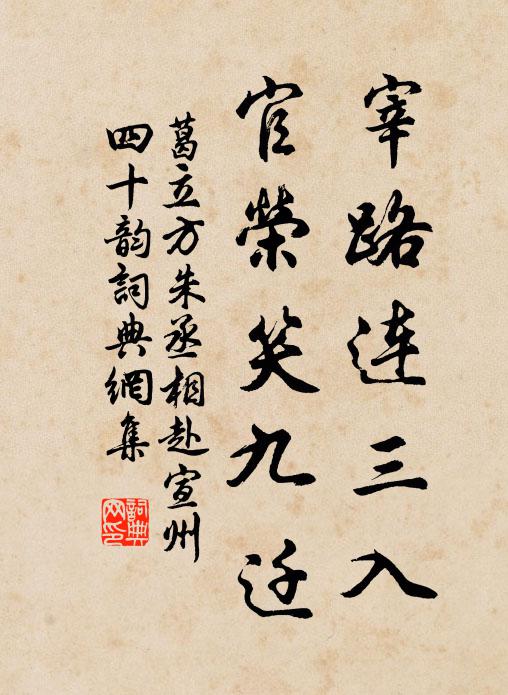 宰路连三入
官荣笑九迁
葛立方朱丞相赴宣州
四十韵词典网集
词典
网印